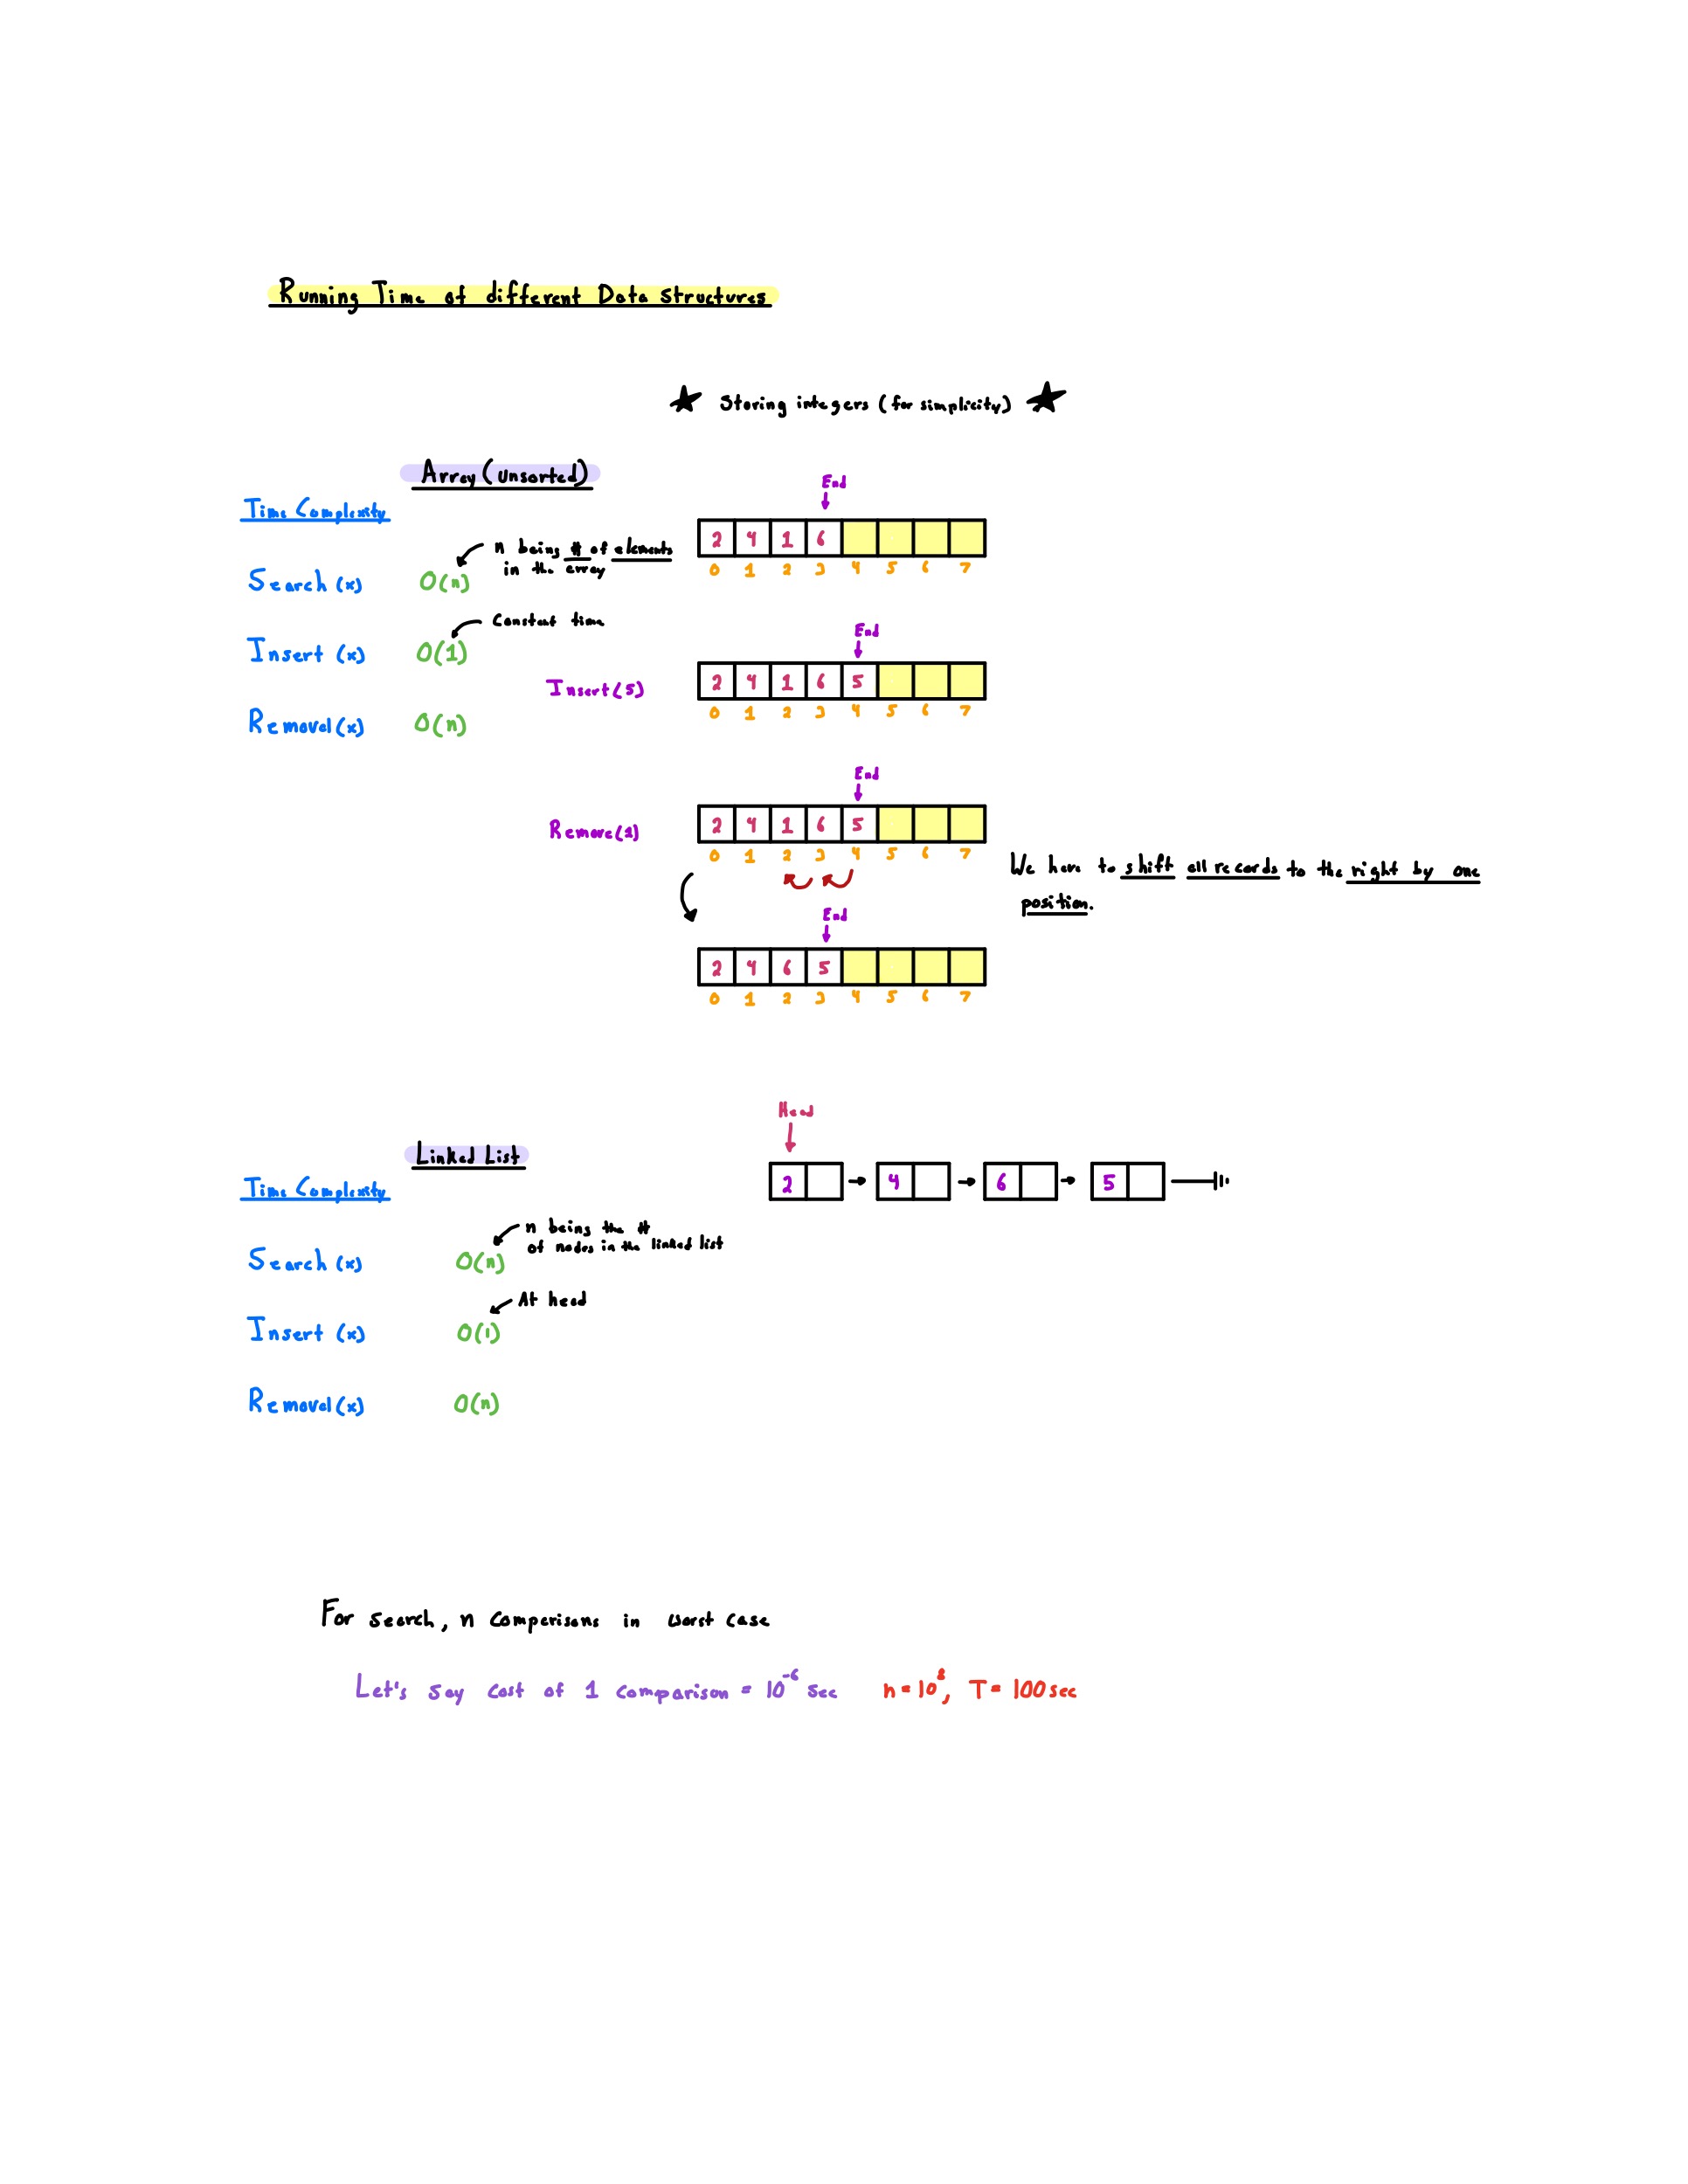 Running Time of different Data Structures
★ Storing integers (for simplicity) ★
Array (unsorted)
Time Complexity
n being # of elements
in the array
Search (x) O(n)
Constant time
Insert (x) O(1)
Removal (x) O(n)
End
2 4 1 6
0 1 2 3 4 5 6 7
End
Insert (5) 2 4 1 6 5
0 1 2 3 4 5 6 7
End
Remove (1) 2 4 1 6 5
0 1 2 3 4 5 6 7
We have to shift all records to the right by one
position.
End
2 4 6 5
0 1 2 3 4 5 6 7
Head
Linked List
2 4 6 5
Time Complexity
n being the #
of nodes in the linked list
Search (x) O(n)
At head
Insert (x) O(1)
Removal (x) O(n)
For search, n comparisons in worst case
Let's say cost of 1 comparison = 10⁻⁶ sec n = 10⁸, T = 100 sec